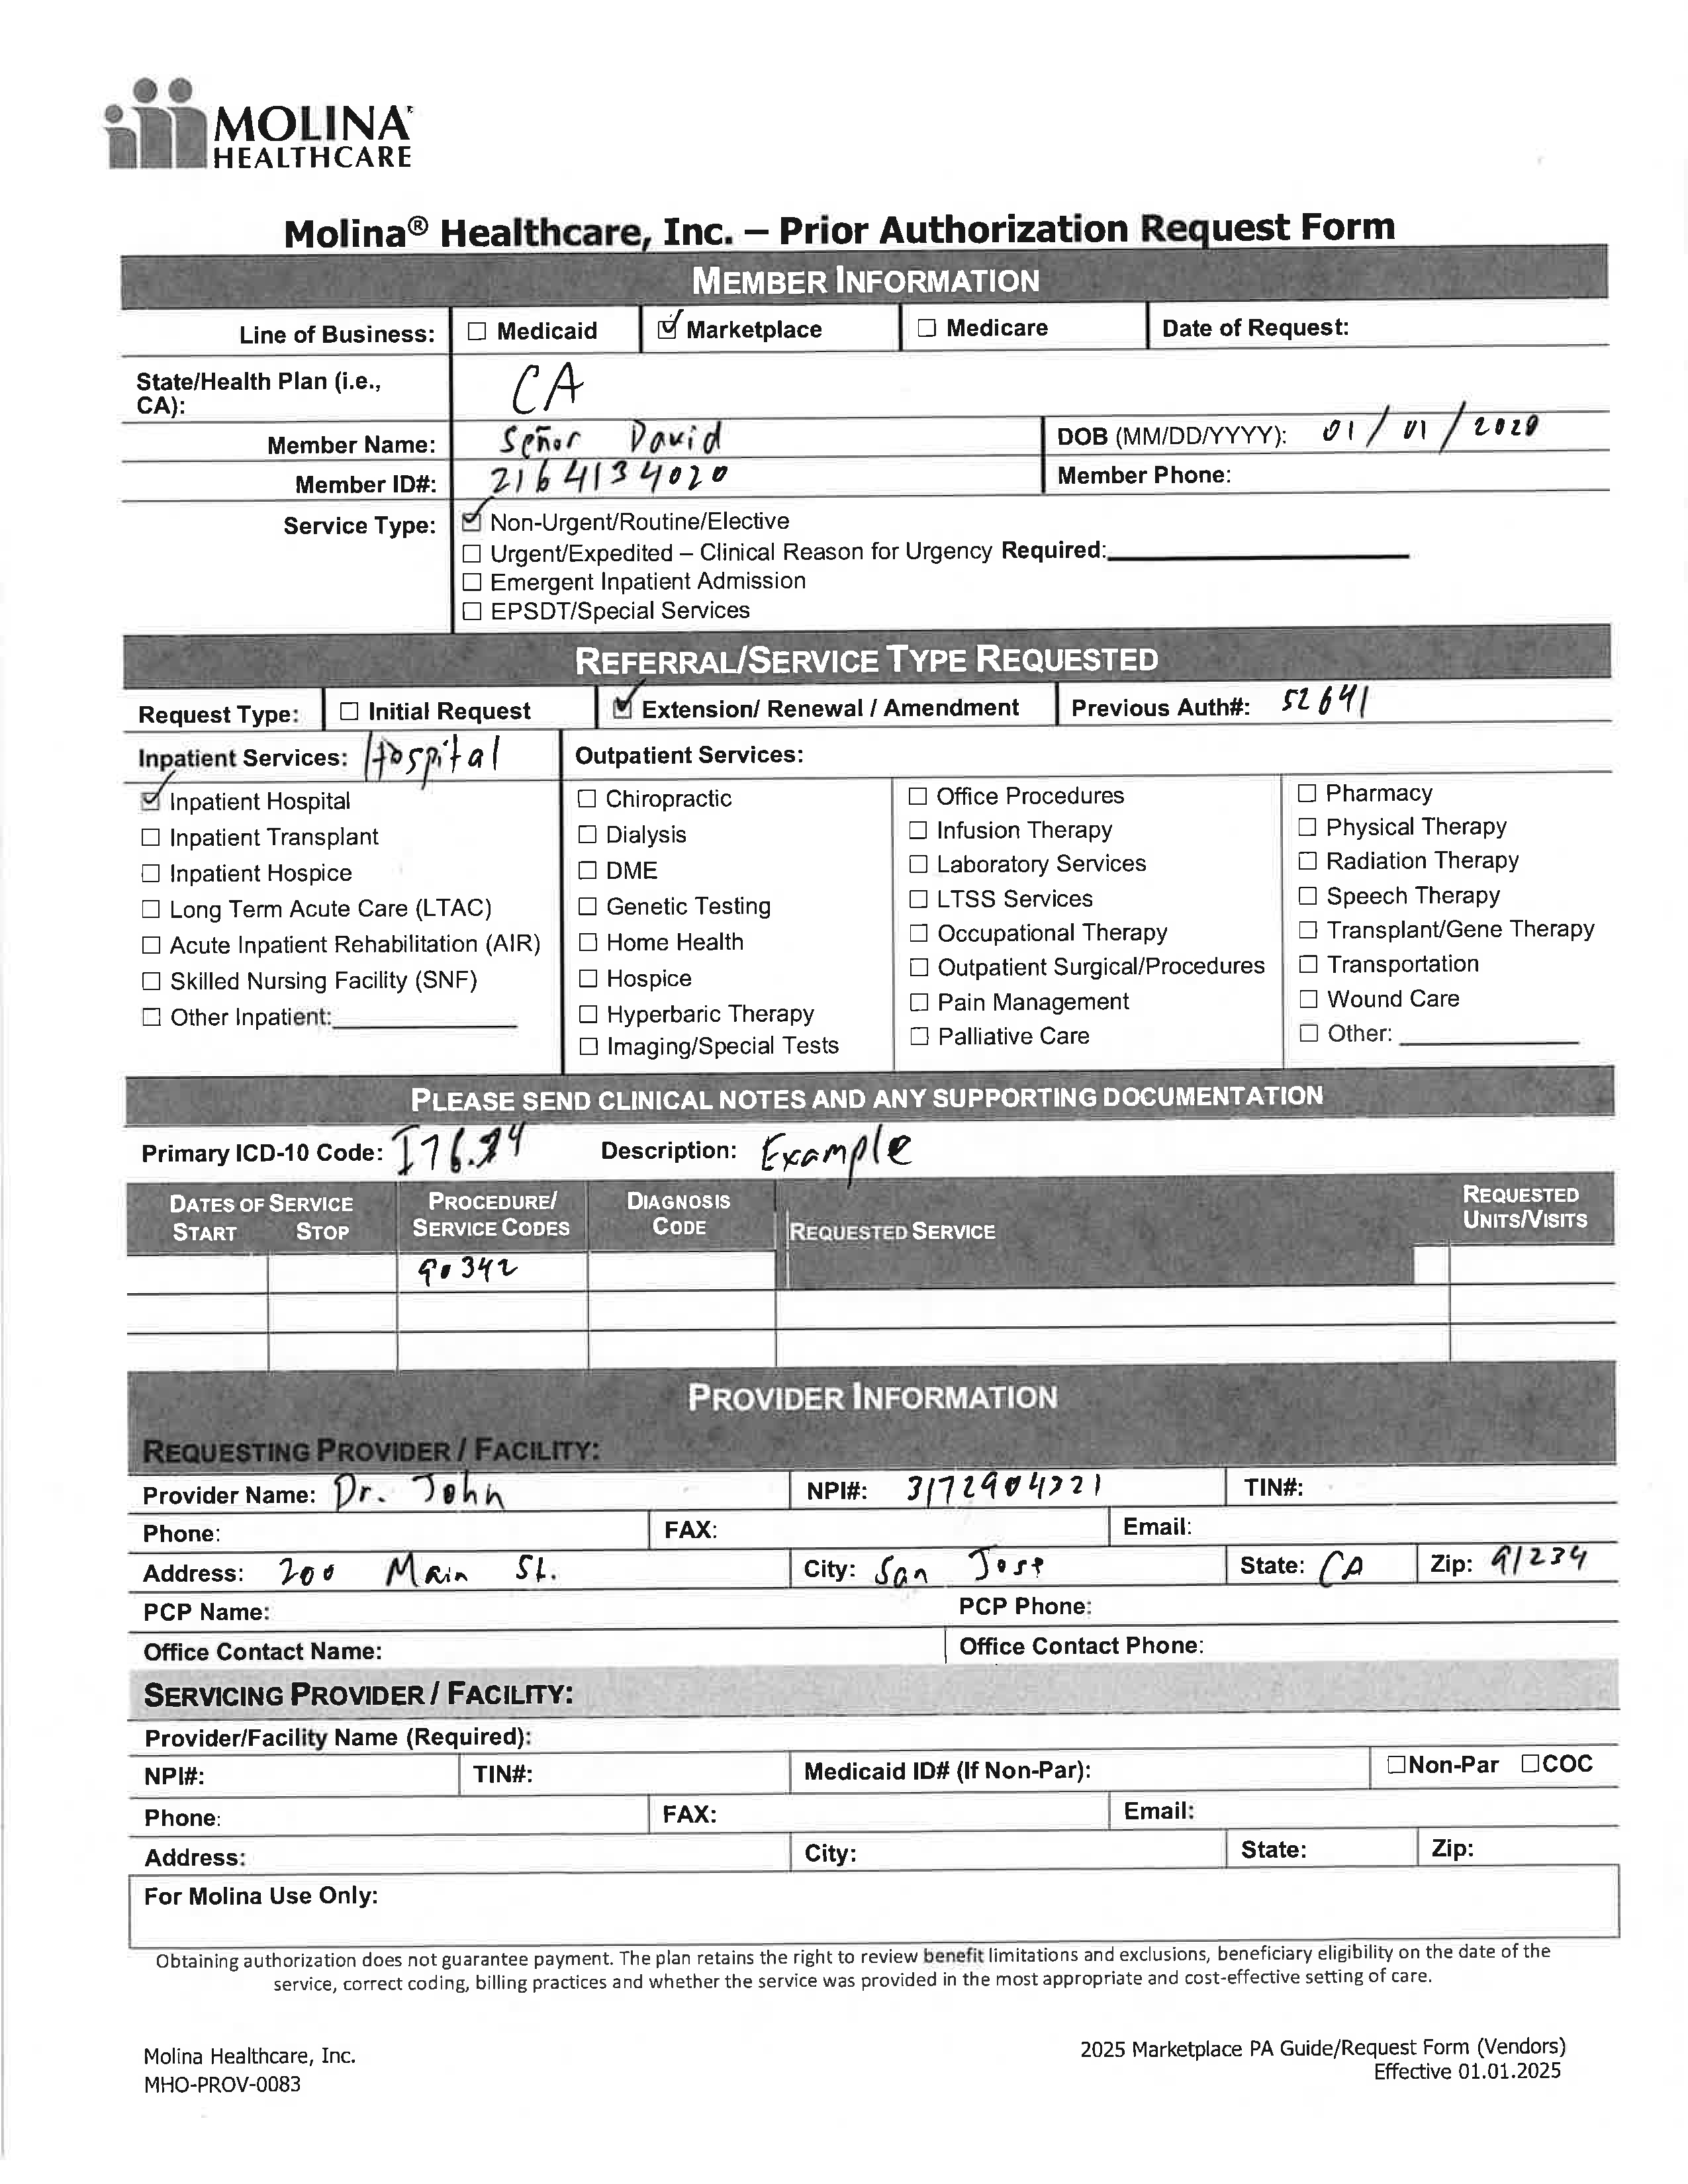 MOLINA
HEALTHCARE
Molina® Healthcare, Inc. – Prior Authorization Request Form
MEMBER INFORMATION
Line of Business: ☐ Medicaid ☑ Marketplace ☐ Medicare Date of Request:
State/Health Plan (i.e.,
CA): CA
Member Name: Señor David DOB (MM/DD/YYYY): 01/01/2020
Member ID#: 2164134020 Member Phone:
Service Type: ☑ Non-Urgent/Routine/Elective
☐ Urgent/Expedited – Clinical Reason for Urgency Required:
☐ Emergent Inpatient Admission
☐ EPSDT/Special Services
REFERRAL/SERVICE TYPE REQUESTED
Request Type: ☐ Initial Request ☑ Extension/ Renewal / Amendment Previous Auth#: 52641
Inpatient Services: Hospital Outpatient Services:
☑ Inpatient Hospital
☐ Inpatient Transplant
☐ Inpatient Hospice
☐ Long Term Acute Care (LTAC)
☐ Acute Inpatient Rehabilitation (AIR)
☐ Skilled Nursing Facility (SNF)
☐ Other Inpatient:
☐ Chiropractic
☐ Dialysis
☐ DME
☐ Genetic Testing
☐ Home Health
☐ Hospice
☐ Hyperbaric Therapy
☐ Imaging/Special Tests
☐ Office Procedures
☐ Infusion Therapy
☐ Laboratory Services
☐ LTSS Services
☐ Occupational Therapy
☐ Outpatient Surgical/Procedures
☐ Pain Management
☐ Palliative Care
☐ Pharmacy
☐ Physical Therapy
☐ Radiation Therapy
☐ Speech Therapy
☐ Transplant/Gene Therapy
☐ Transportation
☐ Wound Care
☐ Other:
PLEASE SEND CLINICAL NOTES AND ANY SUPPORTING DOCUMENTATION
Primary ICD-10 Code: Description: Example
DATES OF SERVICE
START STOP
PROCEDURE/
SERVICE CODES
DIAGNOSIS
CODE
REQUESTED SERVICE
REQUESTED
UNITS/VISITS
90342
PROVIDER INFORMATION
REQUESTING PROVIDER / FACILITY:
Provider Name: Dr. John NPI#: TIN#:
Phone: FAX: Email:
Address: 200 Main St. City: San Jose State: CA Zip: 91234
PCP Name: PCP Phone:
Office Contact Name: Office Contact Phone:
SERVICING PROVIDER / FACILITY:
Provider/Facility Name (Required):
NPI#: TIN#: Medicaid ID# (If Non-Par): ☐Non-Par ☐COC
Phone: FAX: Email:
Address: City: State: Zip:
For Molina Use Only:
Obtaining authorization does not guarantee payment. The plan retains the right to review benefit limitations and exclusions, beneficiary eligibility on the date of the
service, correct coding, billing practices and whether the service was provided in the most appropriate and cost-effective setting of care.
Molina Healthcare, Inc.
MHO-PROV-0083
2025 Marketplace PA Guide/Request Form (Vendors)
Effective 01.01.2025